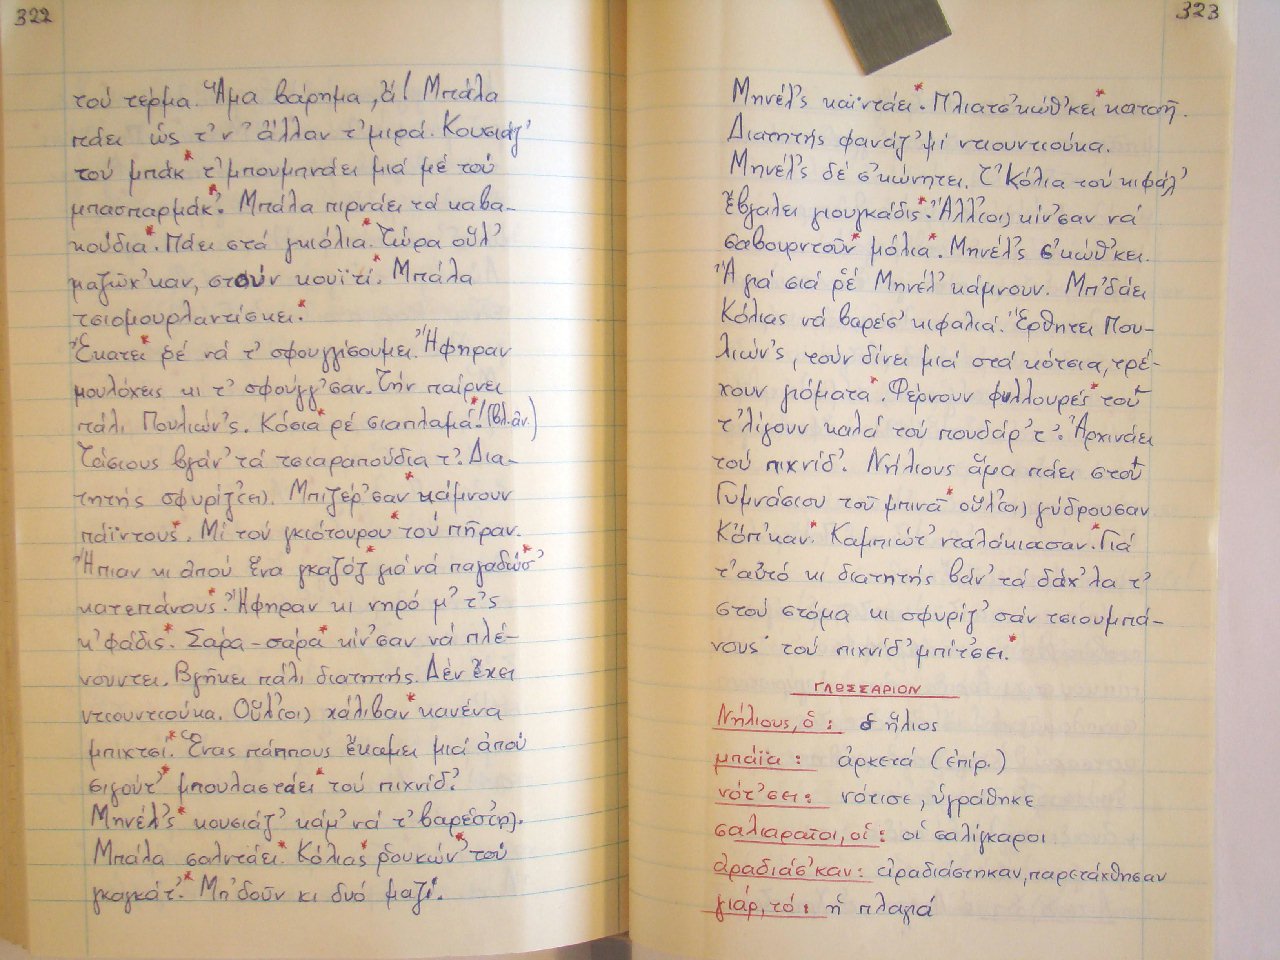 322
τού τέρμα. Ἅμα βάρημα, ἄ! Μπάλα
πάει ὡς τ'ν' ἄλλαν τ'μιρά. Κουσιάζ'
τού μπάκ* τ' μπουμπνάει μιά μέ τού
μπασπαρμάκ'.* Μπάλα πιρνάει τά καβα-
κούδια.* Πάει στά γκιόλια.* Τώρα οὗλ'
μαζώχ'καν, στούν κουϊτί.* Μπάλα
τσιομουρλαντίσκει.*
Ἔκατει* ρέ νά τ' σφουγγίσουμει. Ἤφηραν
μουλόχεις κι τ' σφούγγ'σαν. Τήν παίρνει
πάλι Πουλιών'ς. Κόσια* ρέ σιαπλαμά*! (βλ.ἀν.)
Τάσιους βγάν' τά τσιαραπούδια τ'. Δια-
τητής σφυρίζ(ει). Μπιζέρ'σαν* κάμνουν
πάϊντους*. Μί τού γκιότουρου* τού πῆραν.
Ἤπιαν κι ἀπού ἕνα γκαζόζ* γιά νά παγαδώσ'*
κατεπάνους*. Ἤφηραν κι νηρό μ' τ'ς
κ'φάδις.* Σάρα-σάρα* κίν'σαν νά πλέ-
νουντει. Βγῆκει πάλι διατητής. Δέν ἔχει
ντιουντιούκα. Οὗλ(οι) χάλιβαν* κανένα
μπιχτσί.* Ἕνας πάππους ἔκαμει μιά ἀπού
σιγούτ'* μπουλαστάει* τού πιχνίδ'.
Μηνέλ'ς* κουσιάζ' κάμ' νά τ' βαρέσ(ῃ).
Μπάλα σαλντάει.* Κόλιας* ρουκών'* τού
γκαγκάτ'.* Μπ'δοῦν κι δυό μαζί.
323
Μηνέλ'ς καϊντάει.* Πλιατσ'κώθ'κει* καταῆ.
Διατητής φανάζ' μί ντιουντιούκα.
Μηνέλ'ς δέ σ'κώνητει. Τ' Κόλια τού κιφάλ'
ἔβγαλει γιουγκάδις*. Ἄλλ(οι) κίν'σαν νά
σαβουρντοῦν* μόλια*. Μηνέλ'ς σ'κώθ'κει.
Ἄ γιά σιά ρέ Μηνέλ' κάμνουν. Μπ'δάει
Κόλιας νά βαρέσ' κιφαλιά. Ἔρθητει Που-
λιών'ς, τούν δίνει μιά στά κότσια, τρέ-
χουν γιόματα*. Φέρνουν φυλλουρές* τοῦ
τ'λίγουν καλά τού πουδάρ' τ'. Ἀρχινάει
τού πιχνίδ'. Νήλιους ἅμα πάει στοῦ
Γυμνάσιου τοῦ μπινᾶ* οὗλ(οι) γύδρουσαν
Κόπ'καν*. Καμπιώτ' νταλάκιασαν.* Γιά
τ'αὐτό κι διατητής βάν' τά δάχ'λα τ'
στού στόμα κι σφυρίζ' σάν τσιουμπά-
νους· τού πιχνίδ' μπίτ'σει.*
ΓΛΩΣΣΑΡΙΟΝ
Νήλιους, ὁ: ὁ ἥλιος
μπάϊα: ἀρκετά (ἐπίρ.)
νότ'σει: νότισε, ὑγράθηκε
σαλιαραῖοι, οἱ: οἱ σαλίγκαροι
ἀραδιάσ'καν: ἀραδιάστηκαν, παρετάχθησαν
γιάρ, τό: ἡ πλαγιά